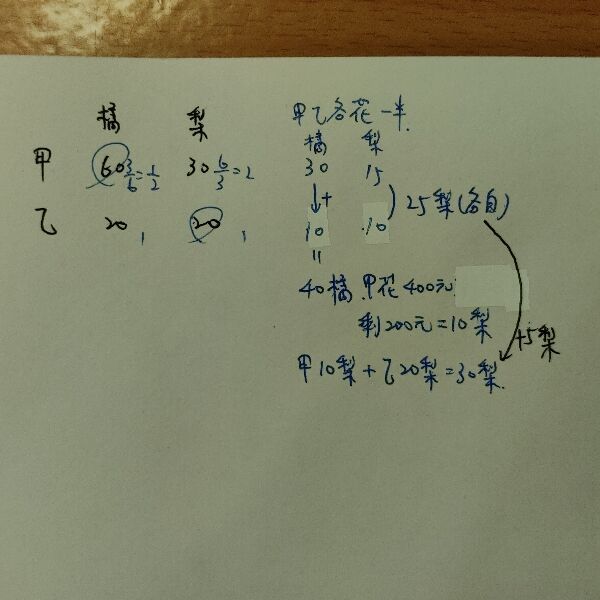 橘 梨
甲 60 3/6=1/2 30 6/3=2
乙 20, 20,
甲乙各花一半
橘 梨
30 15
↓+
10 10 ) 25梨(各自)
=
40橘 甲花400元
剩200元=10梨
+5梨
甲10梨+乙20梨=30梨.